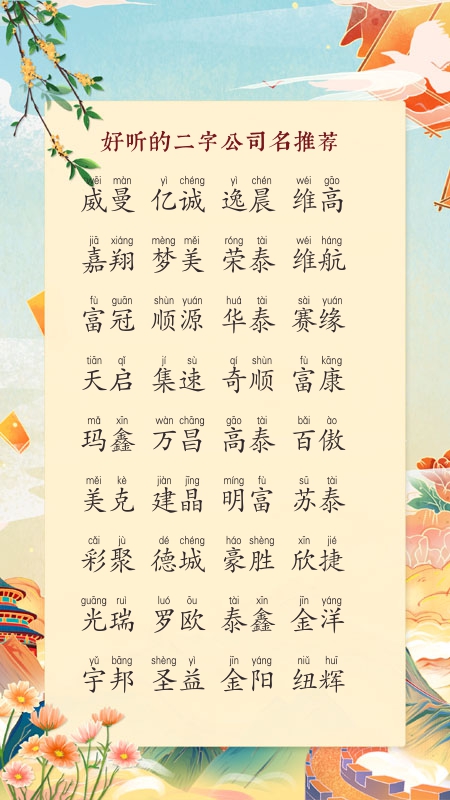 好听的二字公司名推荐
wēi màn yì chéng yì chén wéi gāo
威曼 亿诚 逸晨 维高
jiā xiáng mèng měi róng tài wéi háng
嘉翔 梦美 荣泰 维航
fù guān shùn yuán huá tài sài yuán
富冠 顺源 华泰 赛缘
tiān qǐ jí sù qí shùn fù kāng
天启 集速 奇顺 富康
mǎ xīn wàn chāng gāo tài bǎi ào
玛鑫 万昌 高泰 百傲
měi kè jiàn jīng míng fù sū tài
美克 建晶 明富 苏泰
cǎi jù dé chéng háo shèng xīn jié
彩聚 德城 豪胜 欣捷
guāng ruì luó ōu tài xīn jīn yáng
光瑞 罗欧 泰鑫 金洋
yǔ bāng shèng yì jīn yáng niǔ huī
宇邦 圣益 金阳 纽辉